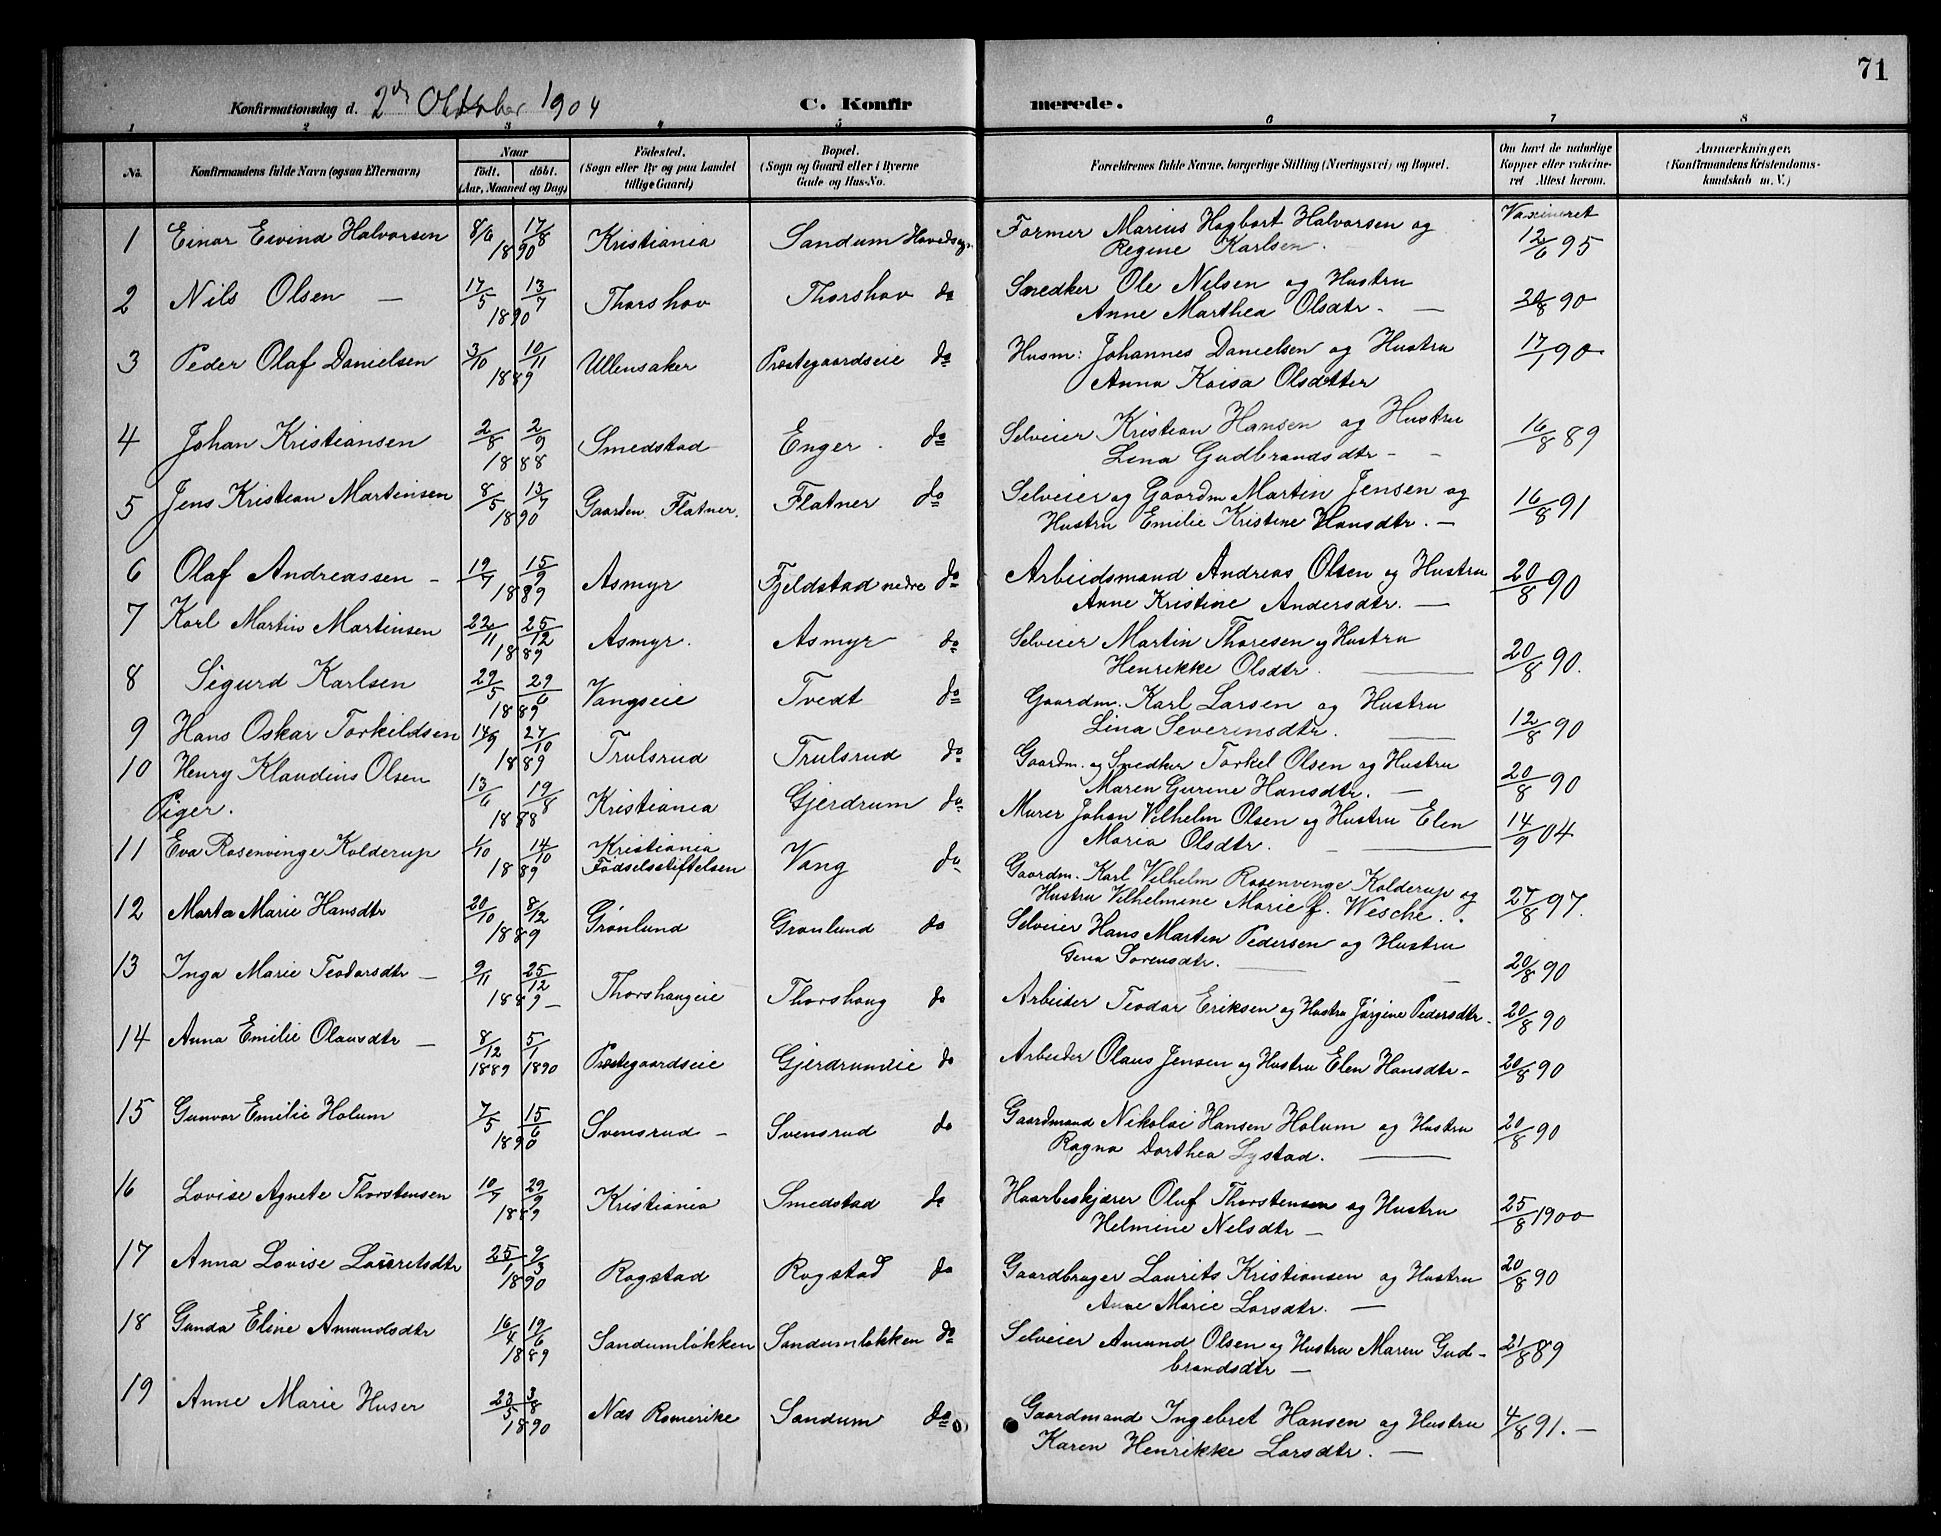 71
Konfirmationsdag d. 2den Oktober 1904 C. Konfirmerede.
1 2 3 4 5 6 7 8
No. Konfirmandens fulde Navn (ogsaa Efternavn) Naar født. døbt. (Aar, Maaned og Dag) Fødested. (Sogn eller By og paa Landet tillige Gaard) Bopæl. (Sogn og Gaard eller i Byerne Gade og Hus-No. Forældrenes fulde Navne, borgerlige Stilling (Næringsvei) og Bopæl. Om havt de naturlige Kopper eller vaksineret Attest herom. Anmærkninger. (Konfirmandens Kristendomskundskab m. V.)
1 Einar Eivind Halvorsen 8/6 17/8 1890 Kristiania Sandum Hovedsogn Former Marius Hagbart Halvorsen og Vaxineret
Regine Karlsen. 12/6 95
2 Nils Olsen — 17/5 13/7 1890 Thorshov Thorshov do Snedker Ole Nilsen og Hustru
Anne Marthea Olsdtr. — 20/8 90
3 Peder Olaf Danielsen 3/10 10/11 1889 Ullensaker Præstegaardseie do Husm: Johannes Danielsen og Hustru 17/7 90
Anna Kaisa Olsdatter
4 Johan Kristiansen 2/8 2/9 1888 Smedstad Enger do Selveier Kristian Hansen og Hustru 16/8 89
Lina Gudbrandsdtr -
5 Jens Kristian Martinsen 8/5 13/7 1890 Gaarden Flatner. Flatner do Selveier og Gaardm Martin Jensen og 16/8 91
Hustru Emilie Kristine Hansdtr. —
6 Olaf Andreassen - 19/7 15/9 1889 Asmyr Fjeldstad nedre do Arbeidsmand Andreas Olsen og Hustru 20/8 90
Anne Kristine Andersdtr. —
7 Karl Martin Martinsen 22/11 25/12 1889 Asmyr. Asmyr do Selveier Martin Thoresen og Hustru 20/8 90.
Henrikke Olsdtr. —
8 Sigurd Karlsen 29/5 29/6 1889 Vangseie Tvedt do Gaardm. Karl Larsen og Hustru
Lina Severinsdtr. — 12/8 90
9 Hans Oskar Torkildsen 14/9 27/10 1889 Trulsrud Trulsrud do Gaardm. og Snedker Torkel Olsen og Hustru 20/8 90
Maren Gurine Hansdtr. —
10 Henry Klaudius Olsen 13/6 19/8 1888 Kristiania Gjerdrum do. Murer Johan Vilhelm Olsen og Hustru Elen 14/9 04
Maria Olsdtr. —
Piger.
11 Eva Rosenvinge Kolderup 1/10 14/10 1889 Kristiania Fødselsstiftelsen Vang do Gaardm. Karl Vilhelm Rosenvinge Kolderup og
Hustru Vilhelmine Marie f. Wesche. 27/8 97.
12 Marta Marie Hansdtr 20/10 8/12 1889 Grønlund Grønlund do Selveier Hans Martin Pedersen og Hustru
Gina Sørensdtr. — 20/8 90
13 Inga Marie Teodorsdtr — 9/11 25/12 1889 — Thorshaugeie Thorshaug do Arbeider Teodor Eriksen og Hustru Jørgine Pedersdtr. 20/8 90
14 Anna Emilie Olausdtr — 8/12 1889 5/1 1890 Præstegaardseie Gjerdrumeie do Arbeider Olaus Jensen og Hustru Elen Hansdtr- 20/8 90
15 Gunvor Emilie Holum 7/5 15/6 1890 Svensrud - Svensrud do Gaardmand Nikolai Hansen Holum og Hustru 20/8 90
Ragna Dorthea Lystad. —
16 Lovise Agnete Thorstensen 10/7 29/9 1889 Kristiania Smedstad do Haarbeskjærer Oluf Thorstensen og Hustru 25/8 1900
Helmine Nilsdtr —
17 Anna Lovise Lauritsdtr 25/1 9/3 1890 Rogstad Rogstad do Gaardbruger Laurits Kristiansen og Hustru 20/8 90
Anne Marie Larsdtr. —
18 Gunda Eline Amundsdtr 16/4 19/6 1889 Sandumløkken Sandumløkken do Selveier Amund Olsen og Hustru Maren Gud- 21/8 89
brandsdtr —
19 Anne Marie Huser 23/5 3/8 1890 Næs Romerike Sandum do Gaardmand Ingebret Hansen og Hustru 4/8 91. —
Karen Henrikke Larsdtr. —